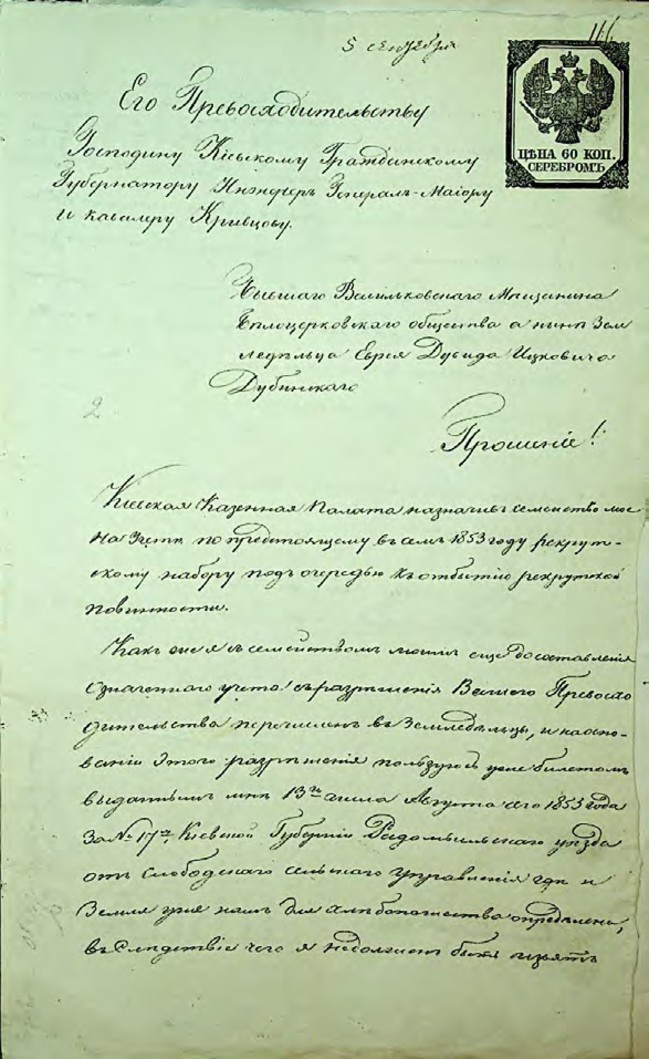 166
5 сентября
ЦѢНА 60 КОП.
СЕРЕБРОМЪ
Его Превосходительству
Господину Кіевскому Гражданскому
Губернатору Инженеръ Генералъ-Маіору
и кавалеру Кривцову.
Бывшаго Васильковскаго Мещанина
Бѣлоцерковскаго общества а нынѣ Зем
ледѣльца Еврея Дувида Ицковича
Дубинскаго
2
Прошеніе!
Кіевская Казенная Палата назначивъ семейство мое
на учетѣ по предстоящему въ семъ 1853 году рекрут-
скому набору подъ очередью къ отбытию рекрутской
повинности.
Какъ же я съ семействомъ моимъ еще до составленія
означеннаго учета съ разрѣшенія Вашего Превосхо
дительства перечисленъ въ Земледѣльцы, и на осно-
ваніи этого разрѣшенія пользуюсь уже билетомъ
выданнымъ мнѣ 13го числа Августа сего 1853 года
за № 17м Кіевской Губерніи Радомысльскаго уѣзда
отъ Слободскаго сельскаго управленія гдѣ и
Земля уже намъ для хлѣбопашества опредѣлена,
въ Слѣдствіе чего я недолженъ быть